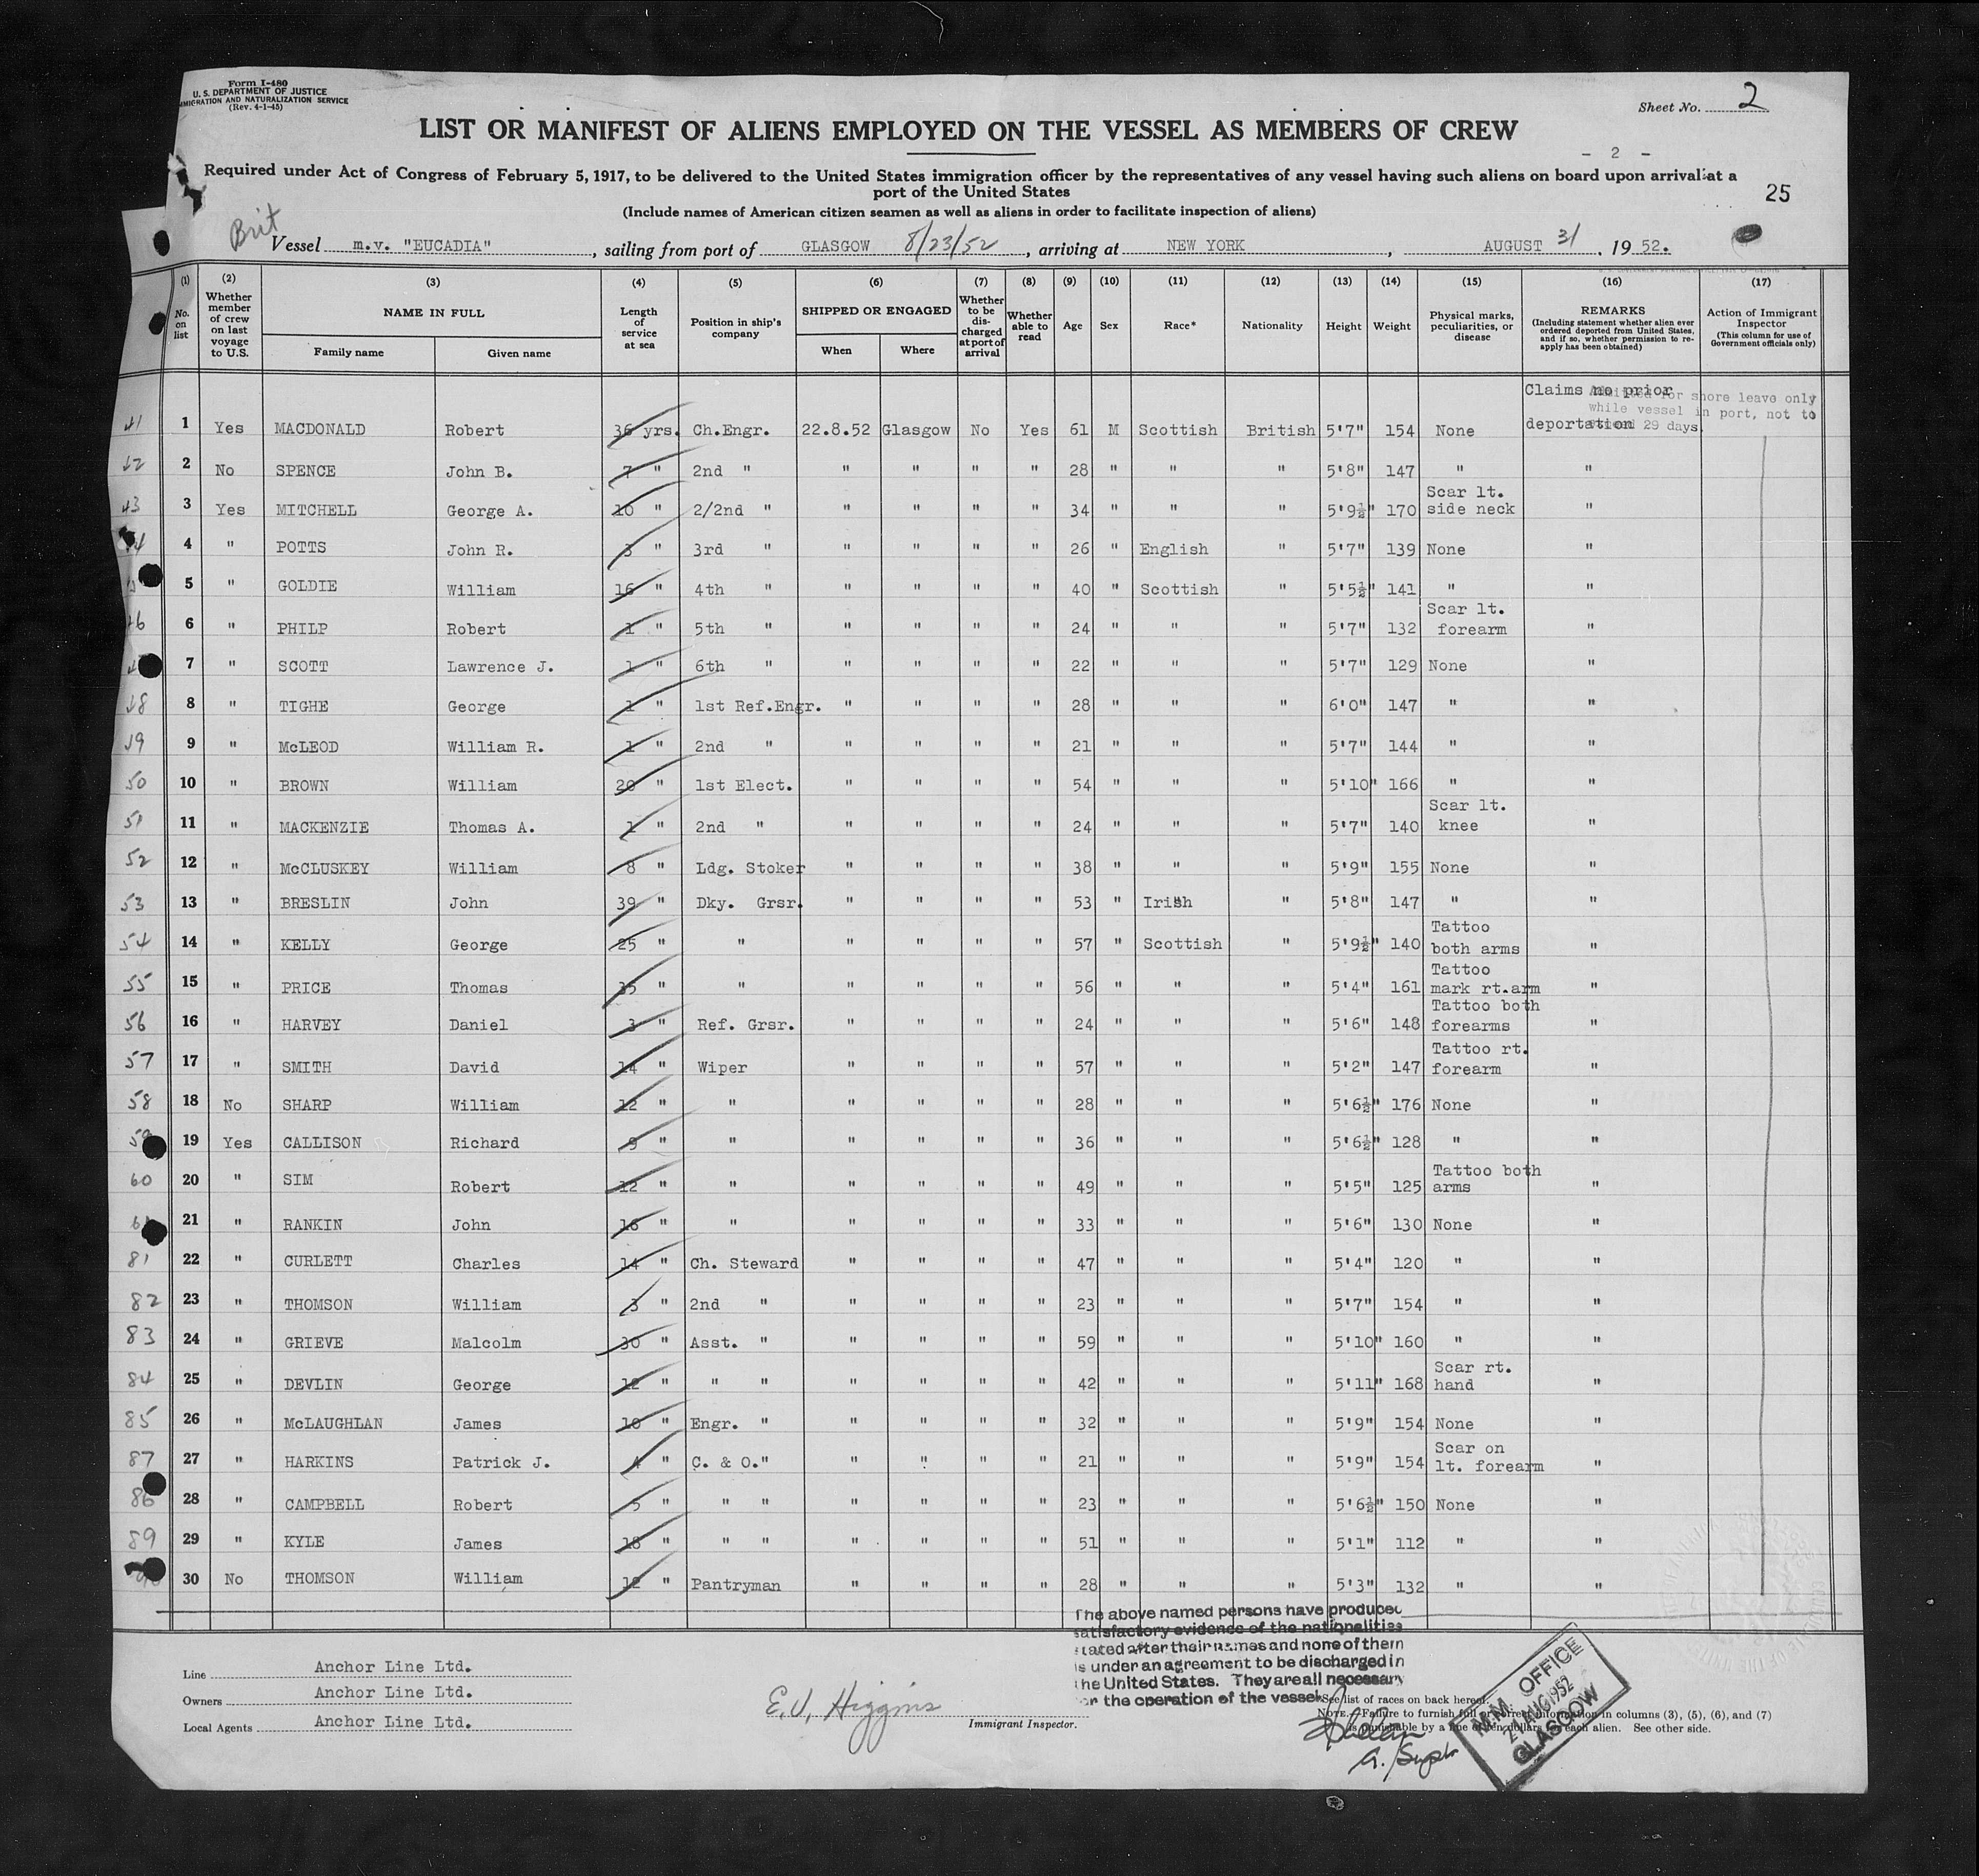 Form I-480
U. S. DEPARTMENT OF JUSTICE
IMMIGRATION AND NATURALIZATION SERVICE
(Rev. 4-1-45)
Sheet No. 2
LIST OR MANIFEST OF ALIENS EMPLOYED ON THE VESSEL AS MEMBERS OF CREW
- 2 -
Required under Act of Congress of February 5, 1917, to be delivered to the United States immigration officer by the representatives of any vessel having such aliens on board upon arrival at a
port of the United States
25
(Include names of American citizen seamen as well as aliens in order to facilitate inspection of aliens)
Brit
Vessel m.v. "EUCADIA", sailing from port of GLASGOW 8/23/52, arriving at NEW YORK, AUGUST 31, 1952.
(1) No. on list (2) Whether member of crew on last voyage to U.S. (3) NAME IN FULL Family name Given name (4) Length of service at sea (5) Position in ship's company (6) SHIPPED OR ENGAGED When Where (7) Whether to be discharged at port of arrival (8) Whether able to read (9) Age (10) Sex (11) Race* (12) Nationality (13) Height (14) Weight (15) Physical marks, peculiarities, or disease (16) REMARKS (Including statement whether alien ever ordered deported from United States, and if so, whether permission to re-apply has been obtained) (17) Action of Immigrant Inspector (This column for use of Government officials only)
Claims no prior
Admitted for shore leave only
while vessel in port, not to
deportation
exceed 29 days.
41 1 Yes MACDONALD Robert 36 yrs. Ch.Engr. 22.8.52 Glasgow No Yes 61 M Scottish British 5'7" 154 None
42 2 No SPENCE John B. 7 " 2nd " " " " " 28 " " " 5'8" 147 " "
43 3 Yes MITCHELL George A. 10 " 2/2nd " " " " " 34 " " " 5'9½" 170 Scar lt. side neck "
44 4 " POTTS John R. 3 " 3rd " " " " " 26 " English " 5'7" 139 None "
5 " GOLDIE William 16 " 4th " " " " " 40 " Scottish " 5'5½" 141 " "
46 6 " PHILP Robert 1 " 5th " " " " " 24 " " " 5'7" 132 Scar lt. forearm "
7 " SCOTT Lawrence J. 1 " 6th " " " " " 22 " " " 5'7" 129 None "
48 8 " TIGHE George 1 " 1st Ref.Engr. " " " " 28 " " " 6'0" 147 " "
49 9 " McLEOD William R. 1 " 2nd " " " " " 21 " " " 5'7" 144 " "
50 10 " BROWN William 20 " 1st Elect. " " " " 54 " " " 5'10" 166 " "
51 11 " MACKENZIE Thomas A. 1 " 2nd " " " " " 24 " " " 5'7" 140 Scar lt. knee "
52 12 " McCLUSKEY William 8 " Ldg. Stoker " " " " 38 " " " 5'9" 155 None "
53 13 " BRESLIN John 39 " Dky. Grsr. " " " " 53 " Irish " 5'8" 147 " "
54 14 " KELLY George 25 " " " " " " 57 " Scottish " 5'9½" 140 Tattoo both arms "
55 15 " PRICE Thomas 35 " " " " " " 56 " " " 5'4" 161 Tattoo mark rt.arm "
56 16 " HARVEY Daniel 3 " Ref. Grsr. " " " " 24 " " " 5'6" 148 Tattoo both forearms "
57 17 " SMITH David 14 " Wiper " " " " 57 " " " 5'2" 147 Tattoo rt. forearm "
58 18 No SHARP William 12 " " " " " " 28 " " " 5'6½" 176 None "
59 19 Yes CALLISON Richard 9 " " " " " " 36 " " " 5'6½" 128 " "
60 20 " SIM Robert 12 " " " " " " 49 " " " 5'5" 125 Tattoo both arms "
61 21 " RANKIN John 16 " " " " " " 33 " " " 5'6" 130 None "
81 22 " CURLETT Charles 14 " Ch. Steward " " " " 47 " " " 5'4" 120 " "
82 23 " THOMSON William 3 " 2nd " " " " " 23 " " " 5'7" 154 " "
83 24 " GRIEVE Malcolm 30 " Asst. " " " " " 59 " " " 5'10" 160 " "
84 25 " DEVLIN George 12 " " " " " " " 42 " " " 5'11" 168 Scar rt. hand "
85 26 " McLAUGHLAN James 10 " Engr. " " " " " 32 " " " 5'9" 154 None "
87 27 " HARKINS Patrick J. 4 " C. & O." " " " " 21 " " " 5'9" 154 Scar on lt. forearm "
86 28 " CAMPBELL Robert 5 " " " " " " " 23 " " " 5'6½" 150 None "
89 29 " KYLE James 18 " " " " " " " 51 " " " 5'1" 112 " "
30 No THOMSON William 12 " Pantryman " " " " 28 " " " 5'3" 132 " "
The above named persons have produced
satisfactory evidence of the nationalities
stated after their names and none of them
is under an agreement to be discharged in
the United States. They are all necessary
for the operation of the vessel.
Line Anchor Line Ltd.
Owners Anchor Line Ltd.
Local Agents Anchor Line Ltd.
E.J. Higgins
Immigrant Inspector.
See list of races on back hereof.
NOTE.—Failure to furnish full or correct information in columns (3), (5), (6), and (7)
is punishable by a fine of ten dollars for each alien. See other side.
M.M. OFFICE
21 AUG 1952
GLASGOW